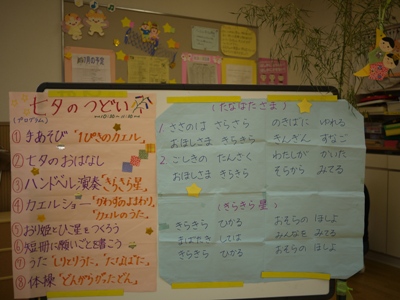 七夕のつどい
(プログラム)
① 手あそび "1ぴきのカエル"
② 七夕のおはなし
③ ハンドベル演奏 "きらきら星"
④ カエルショー "ゲロゲロよわり、
"カエルのうた"
⑤ おり姫とひこ星をつくろう
⑥ 短冊に願いごとを書こう
⑦ うた "しりとりうた"、"たなばた"
⑧ 体操 "どんがらがったどん"
(たなばたさま)
1. ささのは さらさら のきばに ゆれる
おほしさま きらきら きんぎん すなご
2. ごしきの たんざく わたしが かいた
おほしさま きらきら そらから みてる
(きらきら星)
きらきら ひかる おそらの ほしよ
まばたき しては みんなを みてる
きらきら ひかる おそらの ほしよ